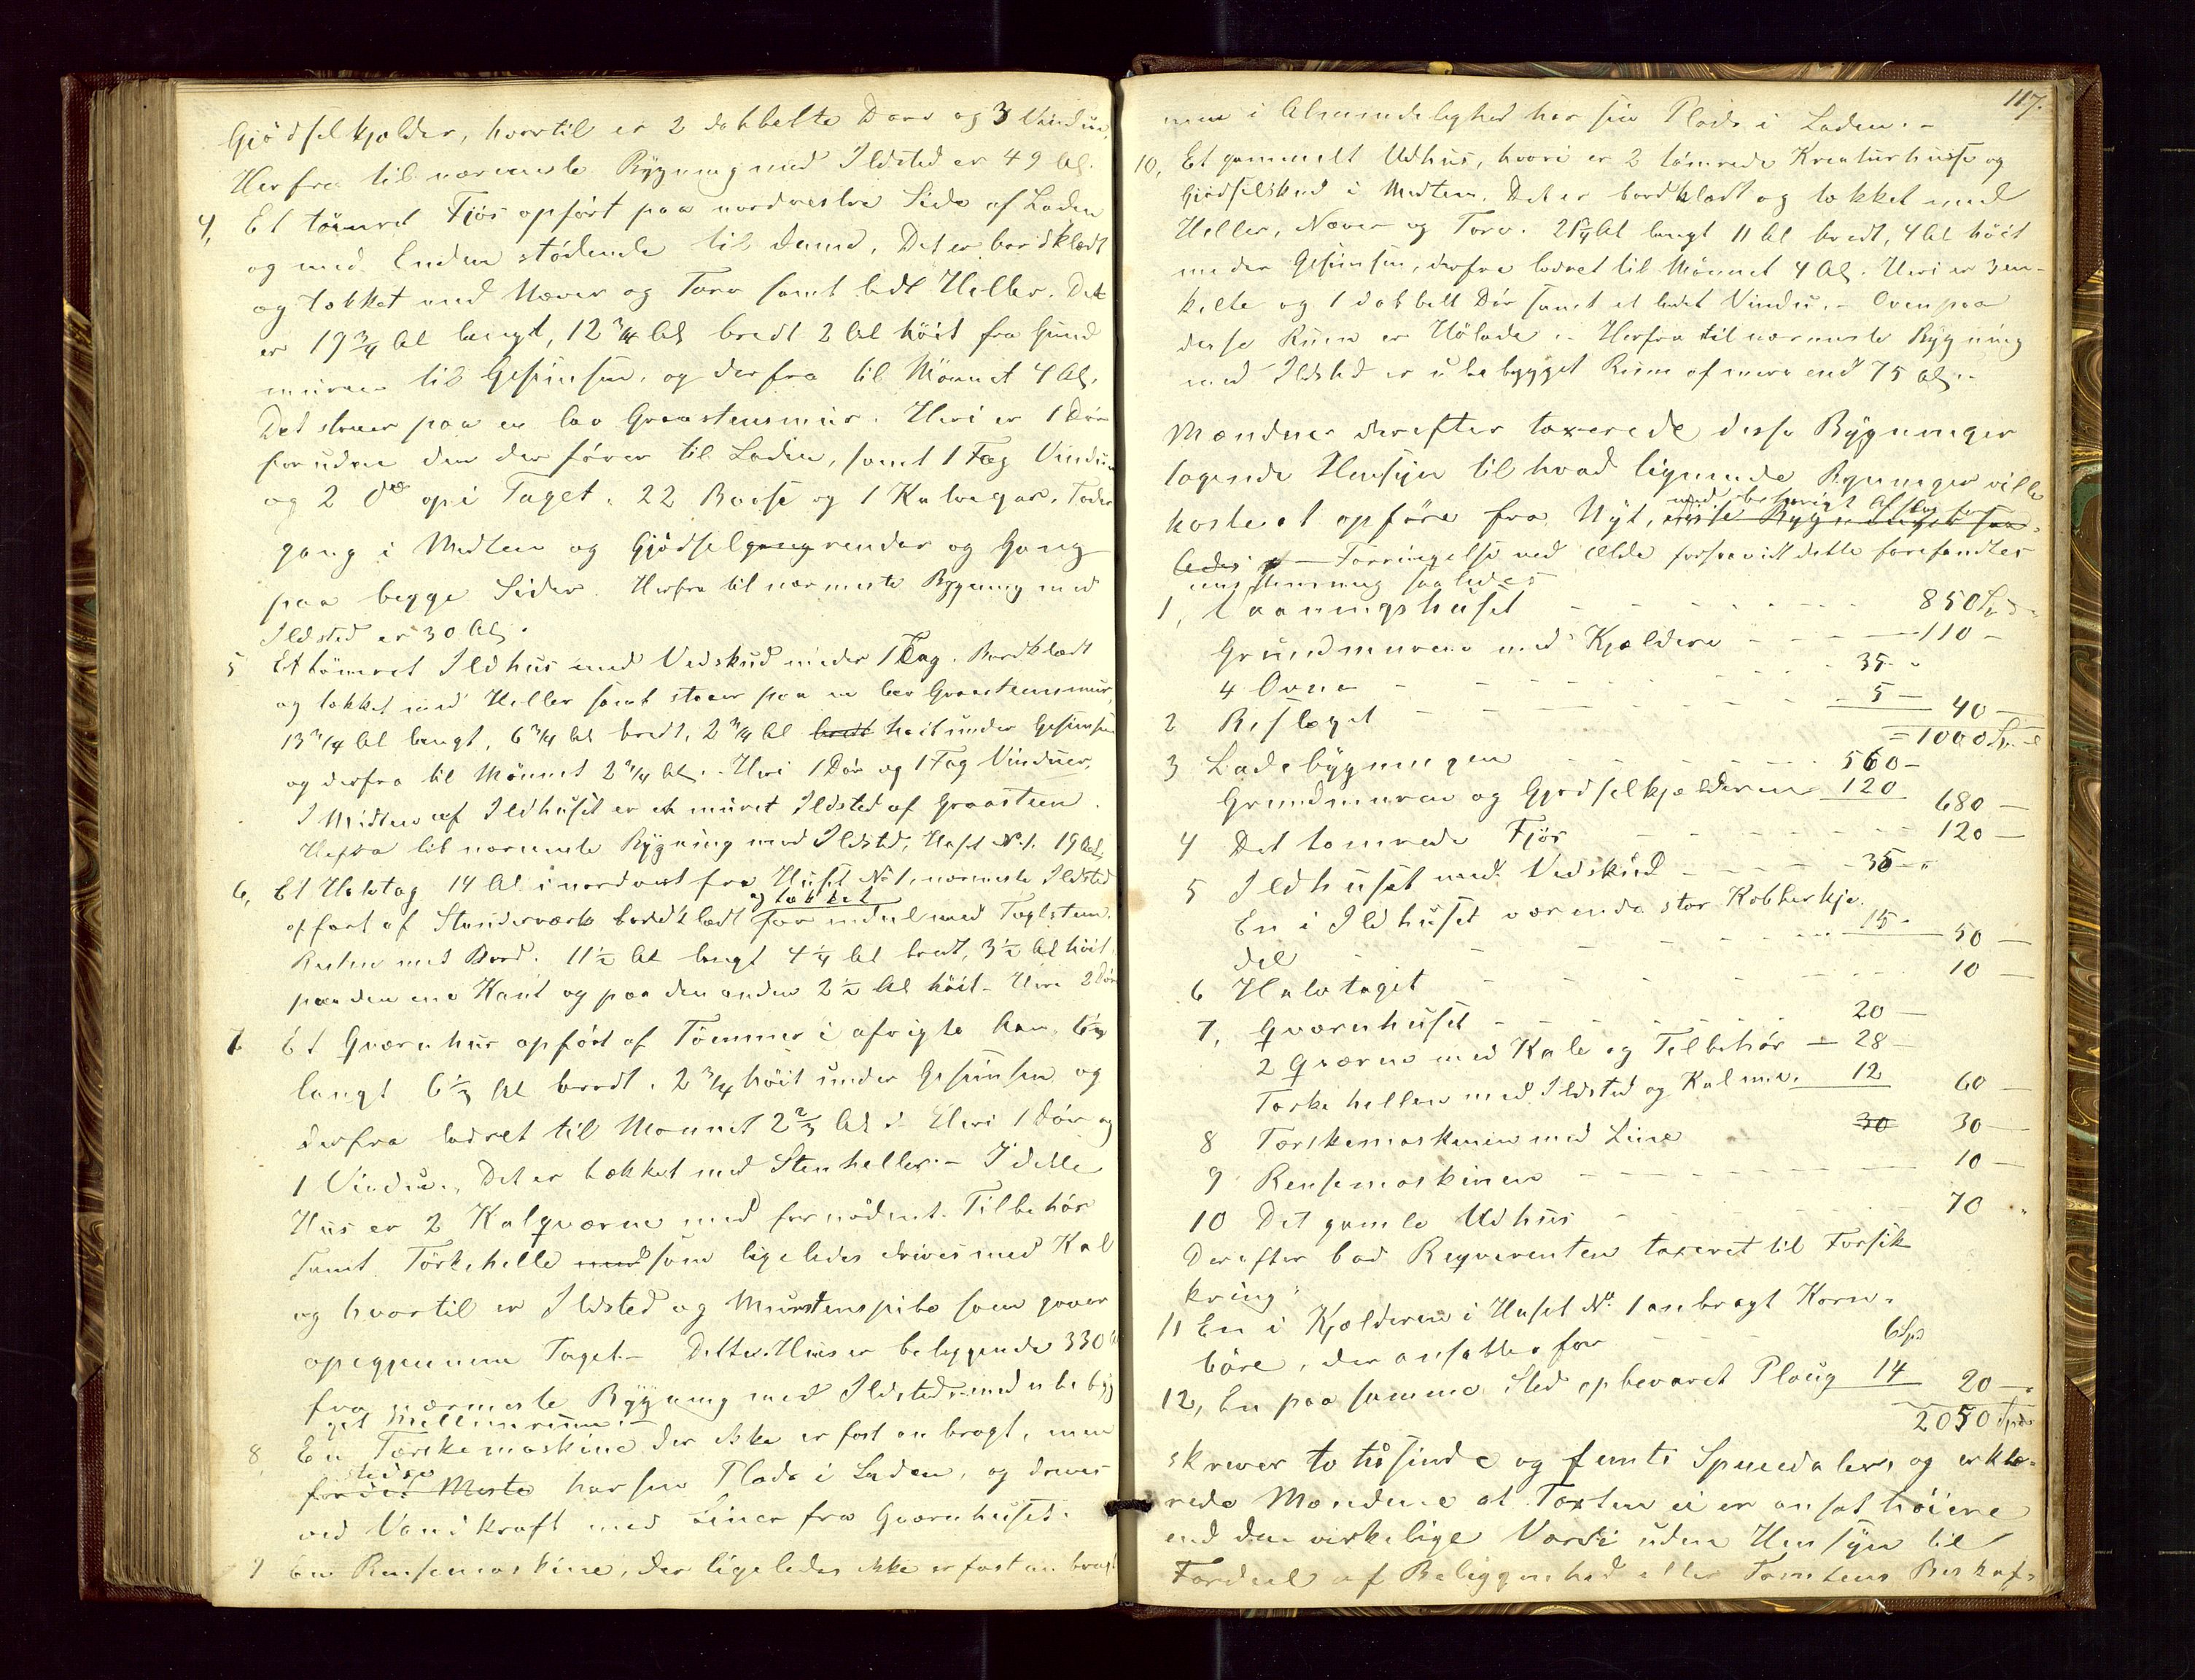 Gjödselkjelder, hvortil er 2 dobbelte Döre og 3 Vinduer.
Herfra til nærmeste Bygning med Ildsted er 49 Al.
4, Et tömret Fjös opfört paa nordvestre Side af Laden
og med Enden stödende til denne. Det er bordklædt
og tækket med Næver og Torv samt lidt Heller. Det
er 19 3/4 Al langt, 12 3/4 Al bredt 2 Al höit fra Grund
muren til Gesimsen, og derfra til Mönnet 4 Al.
Det staaer paa en lav Graastensmur. Heri er 1 Dör
foruden den der förer til Laden, samt 1 Fag Vinduer
og 2 do op i Taget. 22 Baase og 1 Kalvegar. Foder
gang i Midten og Gjödselgang render og Gang
paa begge Sider. Herfra til nærmeste Bygning med
Ildsted er 30 Al.
5 Et tömret Ildhus med Vedskud under 1 Tag. Bordklædt
og tækket med Heller samt staaer paa en lav Graastensmur,
13 3/4 Al langt, 6 3/4 Al bredt, 2 3/4 Al bredt höit under Gesimsen
og derfra til Mönnet 2 3/4 Al. Heri 1 Dör og 1 Fag Vinduer.
I Midten af Ildhuset er et muret Ildsted af Graasteen.
Herfra til nærmeste Bygning med Ildsted, Huset No 1. 19 Al.
6, Et Halvtag 14 Al i nordvest fra Huset No 1, nærmeste Ildsted
og tækket
opfört af Stenderværk bordklædt for endeel med Taglsten.
Resten med Bord. 11 1/2 Al langt 4 1/4 Al bredt, 3 1/2 Al höit
paa den ene Kant og paa den anden 2 1/2 Al höit. Heri 2 Döre
7 Et Qværnhus opfört af Tömmer i afvigte Aar.
langt 6 1/3 Al bredt. 2 3/4 höit under Gesimsen og
derfra lodret til Mönnet 2 2/3 Al. Heri 1 Dör og
1 Vindue. Det er tækket med Stenheller. - I dette
Hus er 2 Kalqværne med fornödent Tilbehör
samt Törkehelle med som ligeledes drives med Kal
og hvortil er Ildsted og Murstenspibe som gaaer
opigjennem Taget. - Dette Huus er beliggende 330 Al
fra nærmeste Bygning med Ildsted med ubebyg
get Mellemrum. -
8, En Tærskemaskine der ikke er fast anbragt, men
stedse
for det Meste har sin Plads i Laden, og drives
ved Vandkraft med Liner fra Qværnhuset.
9 En Rensemaskine, der ligeledes ikke er fast anbragt
117.
men i Almindelighed har sin Plads i Laden. -
10, Et gammelt Udhus, hvori er 2 tömrede Kreaturhuse og
Gjödselskud i Midten. Det er bordklædt og tækket med
Heller, Næver og Torv. Al langt 11 Al bredt, 4 Al höit
under Gesimsen, derfra lodret til Mönnet 4 Al. Heri er 3 en-
kelte og 1 dobbelt Dör samt et lidet Vindu. - Ovenpaa
disse Rum er Hölade. Herfra til nærmeste Bygning
med Ildsted er ubebygget Rum af mere end 75 Al. -
Mændene derefter taxerede disse Bygninger
tagende Hensyn til hvad lignende Bygninger ville
med behörigt Afslag for
koste at opföre fra Nyt, disse Bygninger saa-
ledes Forringelse ved Ælde forsaavidt dette forefandtes
saaledes
1, Vaaningshuset - - - 850 Spd
Grundmuren med Kjeldere - - - 110 -
4 Ovne - - - 35 -
2 Bislaget - - - 5 - 40 -
= 1000 Spd
3 Ladebygningen - - - 560 -
Grundmuren og Gjödselkjelderen 120 680 -
4 Det tömrede Fjös - - - 120 -
5 Ildhuset med Vedskud - - - 35 -
En i Ildhuset værende stor Kobberkje-
del - - - 15 - 50 -
6 Halvtaget - - - 10 -
7, Qværnhuset - - - 20 -
2 Qværne med Kale og Tilbehör - 28 -
Törkehellen med Ildsted og Kal m.v. 12 60 -
8 Tærskemaskinen med Line 30 30 -
9 Rensemaskinen - - - 10 -
10 Det gamle Udhus - - - 70 -
Derefter bad Reqvirenten taxeret til Forsik
kring:
11 En i Kjælderen i Huset No 1 anbragt Korn-
böre, der ansattes for - - - 6 Spd
12, En paa samme Sted opbevaret Ploug 14 20 -
2050 Spd
skriver to tusinde og femti Speciedaler, og erklæ-
rede Mændene at Taxten ei er ansat höiere
end den virkelige Værdi uden Hensyn til
Fordeel af Beliggenhed eller Tomtens Beskaf-